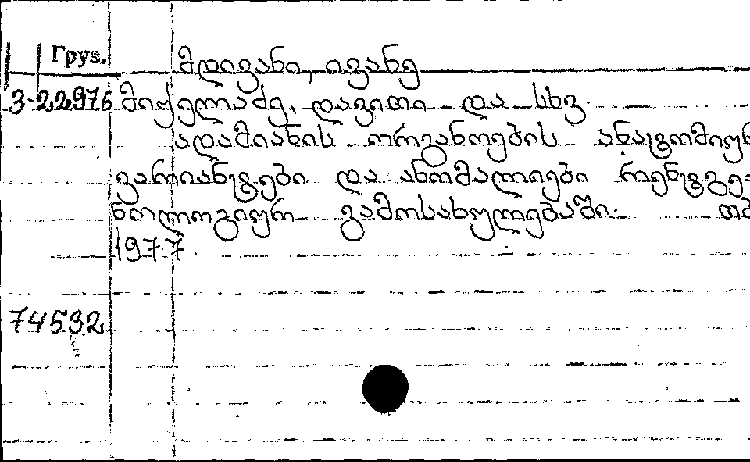 Груз. მდივანი, ივანე
3-22976 მიქელაძე, დავითი და სხვ.
ადამიანის ორგანოების ანატომიურ
ვარიანტები და ანომალიები რენტგე-
ნოლოგიურ გამოსახულებაში. თბ
1977
74592